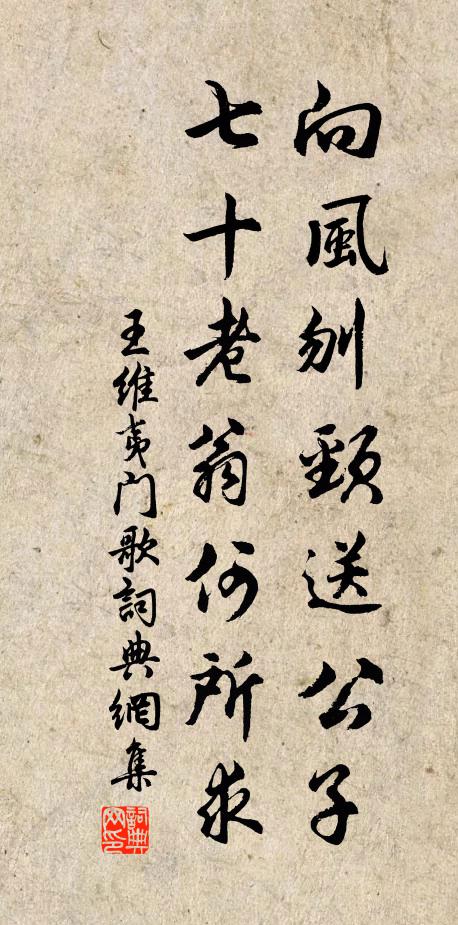 向風刎頸送公子
七十老翁何所求
王維夷门歌詞典網集
詞典
网印